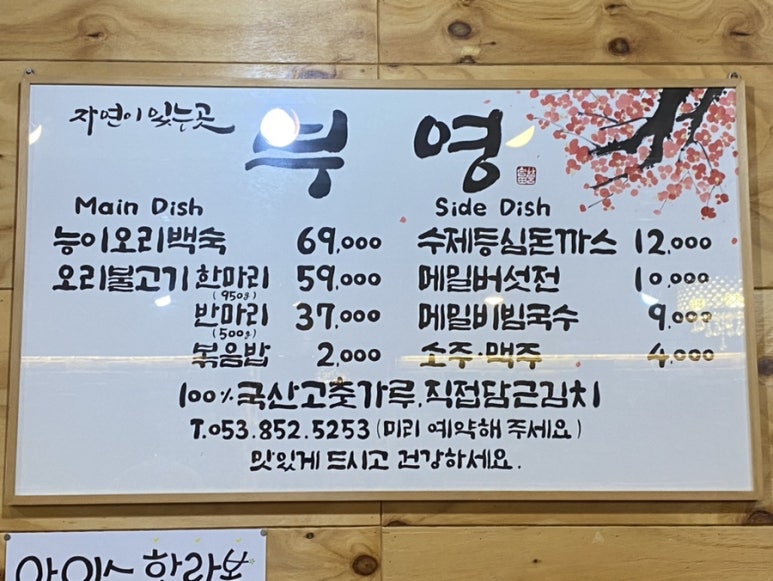 자연이 있는 곳
부영
Main Dish
능이오리백숙 69,000
오리불고기 한마리 59,000
(950g)
반마리 37,000
(500g)
볶음밥 2,000
Side Dish
수제등심돈까스 12,000
메밀버섯전 10,000
메밀비빔국수 9,000
소주·맥주 4,000
100% 국산고춧가루, 직접담근김치
T.053.852.5253 (미리 예약해 주세요)
맛있게 드시고 건강하세요.